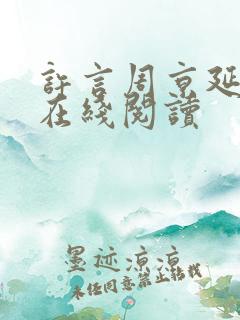 許言周京延
在綫閱讀
墨迹凉凉
未经同意禁止转载